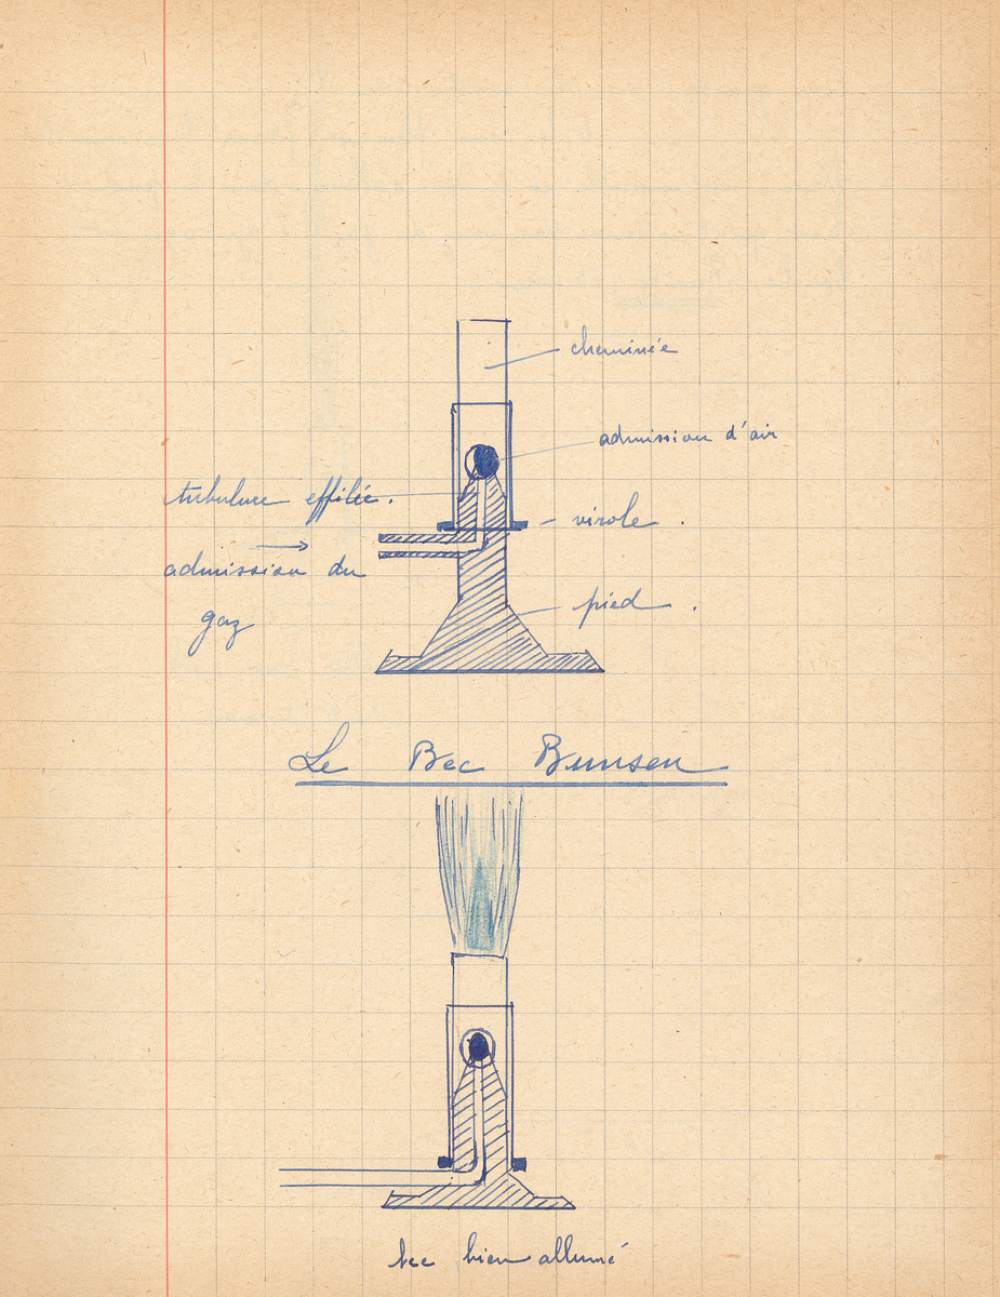 cheminée
admission d'air
tubulure effilée.
virole .
admission du
gaz
pied .
Le Bec Bunsen
bec bien allumé